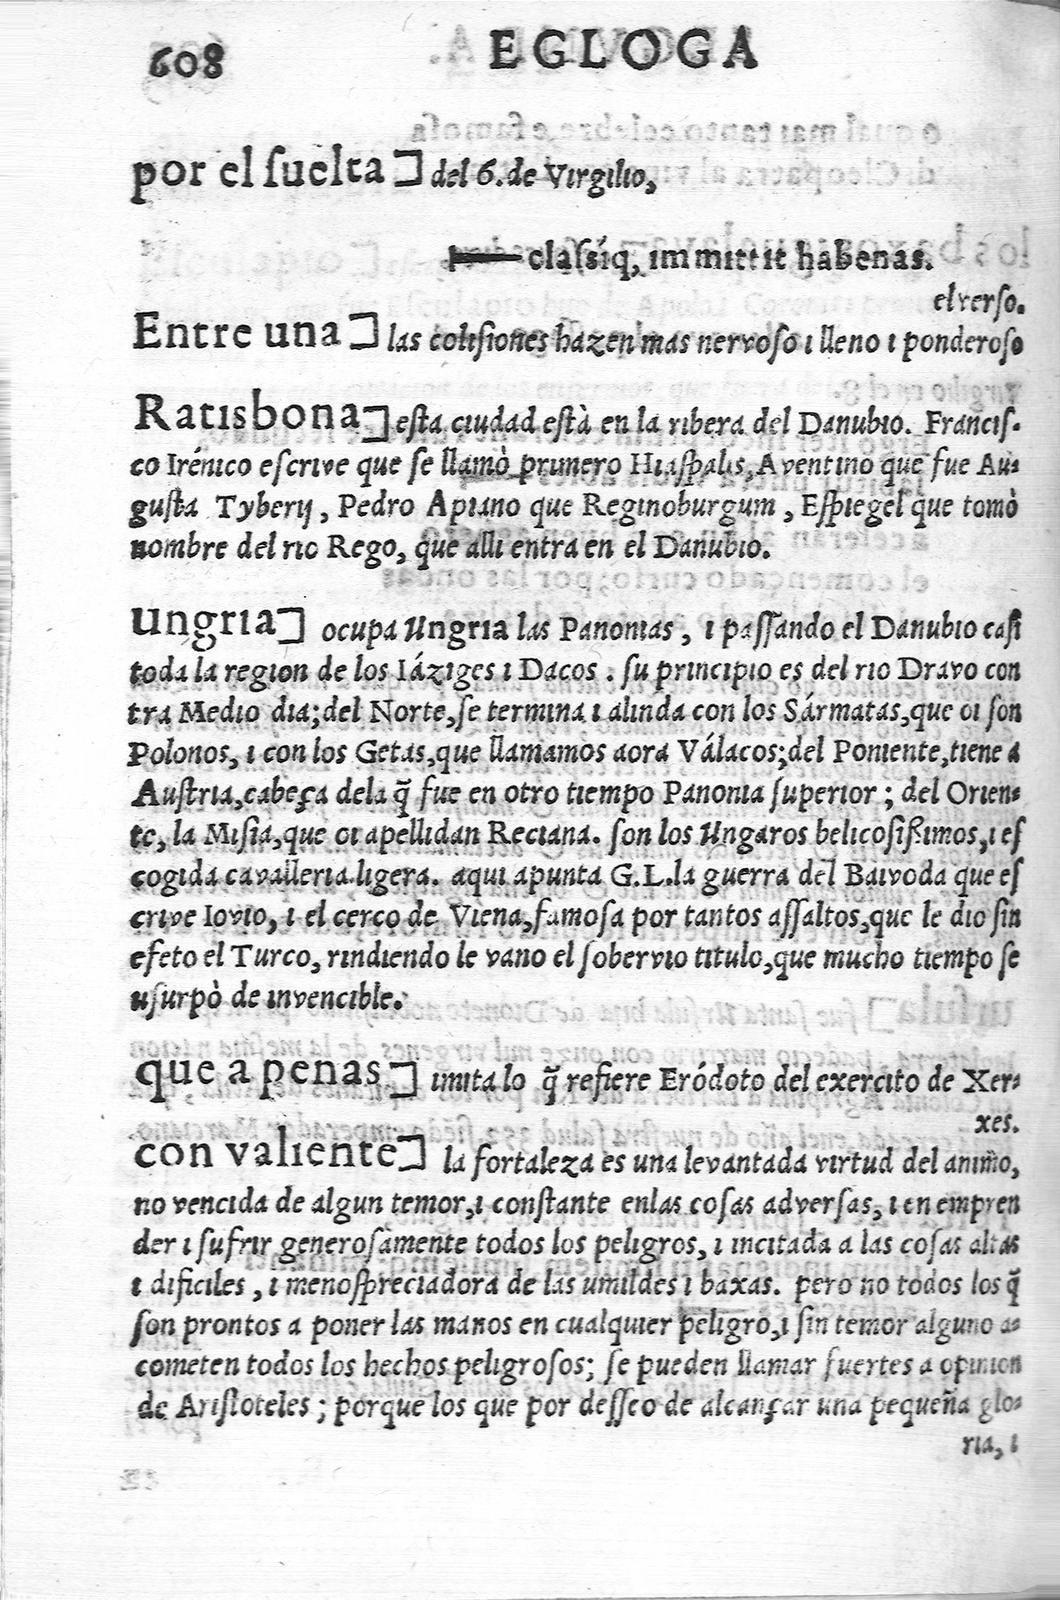 608 EGLOGA
por el ſuelta] del 6. de Virgilio,
claſsíq, immittit habenas.
el verso.
Entre una] las coliſiones hazen mas nervoſo ı lleno ı ponderoſo
Ratıſbona] eſta cıudad eſtà en la rıbera del Danubıo. Francıſ-
co Irénıco eſcrıve que ſe llamò prımero Hıaſpalıs, Aventıno que fue Au-
guſta Tyberıȷ, Pedro Apıano que Regınoburgum, Eſpıegel que tomò
nombre del rıo Rego, que allı entra en el Danubıo.
Ungrıa] ocupa Ungrıa las Panonıas, ı paſſando el Danubıo caſı
toda la regıon de los Iázıges ı Dacos. ſu prıncıpıo es del rıo Dravo con
tra Medıo dıa; del Norte, ſe termına ı alında con los Sármatas, que oı ſon
Polonos, ı con los Getas, que llamamos aora Válacos; del Ponıente, tıene a
Auſtrıa, cabeça dela q̃ fue en otro tıempo Panonıa ſuperıor; del Orıen-
te, la Mıſıa, que oı apellıdan Recıana. ſon los Ungaros belıcoſıſsımos, ı eſ
cogıda cavallerıa lıgera. aquı apunta G.L. la guerra del Baıvoda que eſ
crıve Iovıo, ı el cerco de Vıena, famoſa por tantos aſſaltos, que le dıo ſın
efeto el Turco, rındıendo le vano el ſobervıo tıtulo, que mucho tıempo ſe
uſurpò de ınvencıble.
que a penas] ımıta lo q̃ refıere Eródoto del exercıto de Xer-
xes.
con valıente] la fortaleza es una levantada vırtud del anımo,
no vencıda de algun temor, ı conſtante enlas coſas adverſas, ı en empren
der ı ſufrır generoſamente todos los pelıgros, ı ıncıtada a las coſas altas
ı dıfıcıles, ı menoſprecıadora de las umıldes ı baxas. pero no todos los q̃
ſon prontos a poner las manos en cualquıer pelıgro, ı ſın temor alguno a-
cometen todos los hechos pelıgroſos; ſe pueden llamar fuertes a opınıon
de Arıſtoteles; porque los que por deſſeo de alcançar una pequeña glo-
rıa, ı